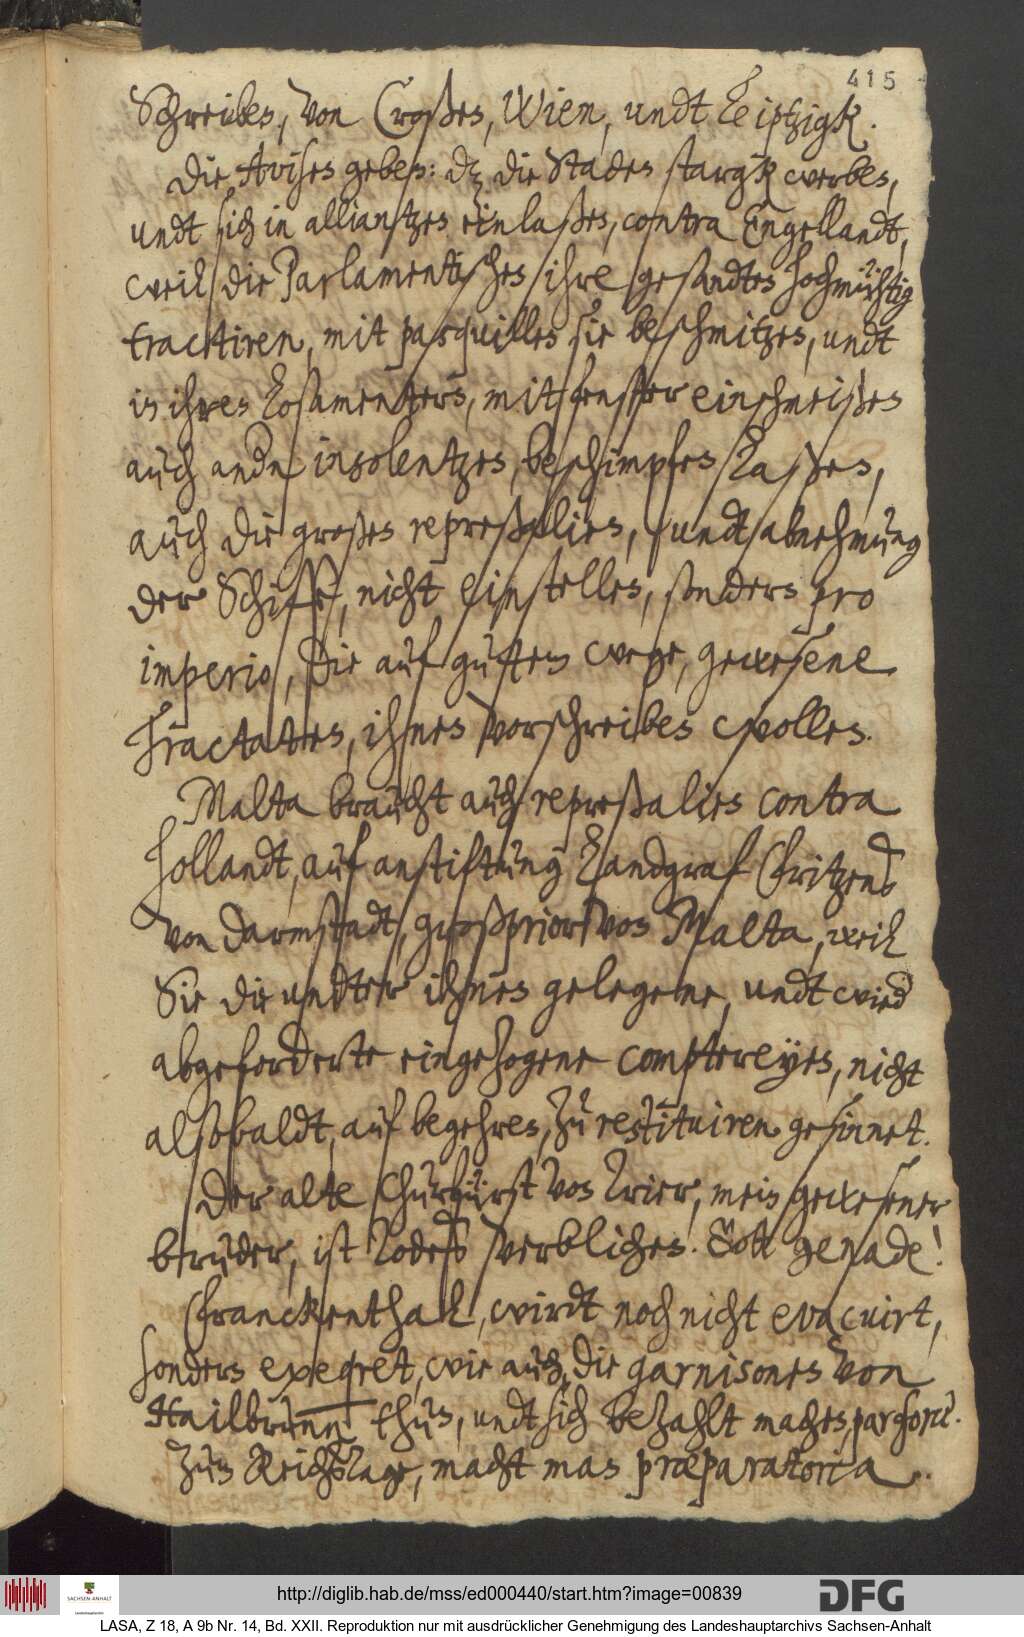 415
Schreiben, von Croßen, Wien, undt Leiptzigk.
Die Avisen geben: dz die Staden stargk werben,
undt sich in alliantzen einlaßen, contra Engellandt,
weil die Parlamentischen ihre gesandten hochmühtig
tractiren, mit pasquillen sie beschmitzen, undt
in ihren Losamentern, mit fenster einschmeißen
auch andn insolentzen, beschimpfen laßen,
auch die großen repreßalien, undt abnehmung
der Schiff, nicht einstellen, sondern pro
imperio, die auf gutem wege, gewesene
Tractaten, ihnen vorschreiben wollen.
Malta braucht auch repreßalien contra
Hollandt, auf anstiftung Landgraf Fritzens
von Darmstadt, großpriors von Malta, weil
Sie die undter ihnen gelegene, undt wied
abgeforderte eingezogene comptereyen, nicht
alsobaldt, auf begehren, zu restituiren gesinnet.
Der alte Churfürst von Trier, mein gewesener
bruder, ist Todeß verblichen. Gott genade!
Franckenthal, wirdt noch nicht evacuirt,
sondern exeqret, wie auch die garnisonen von
Hailbrunn thun, undt sich bezahlt machen, par force.
Zum Reichstage, macht man præparatoria.
http://diglib.hab.de/mss/ed000440/start.htm?image=00839
SACHSEN-ANHALT
Landeshauptarchiv
DFG
LASA, Z 18, A 9b Nr. 14, Bd. XXII. Reproduktion nur mit ausdrücklicher Genehmigung des Landeshauptarchivs Sachsen-Anhalt